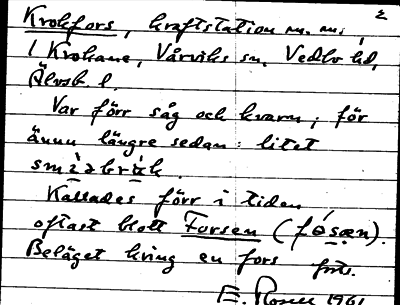 2
Krokfors, kraftstation m. m.,
i Krokane, Vårviks sn, Vedbo hd,
Älvsb. l.
Var förr såg och kvarn, för
ännu längre sedan: litet
smìəbrùk.
Kallades förr i tiden
oftast blott Forsen (fósæn).
Beläget kring en fors
E. 1961